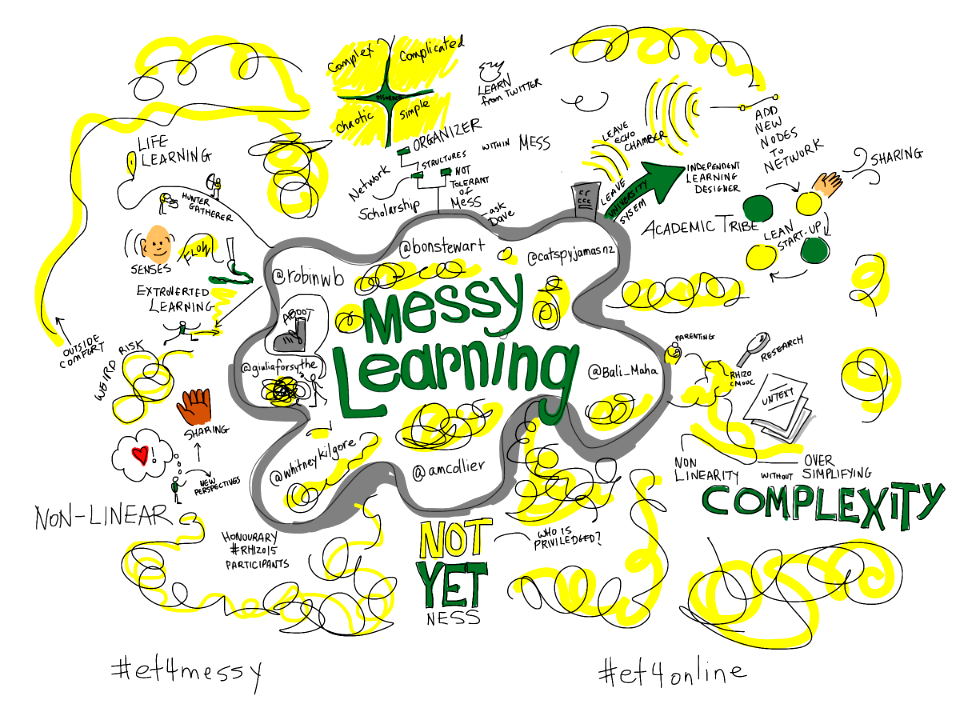 Complex
Complicated
chaotic
simple
LEARN
from TWITTER
ORGANIZER
STRUCTURES WITHIN MESS
NOT
TOLERANT
of
MESS
Network
Scholarship
ask
Dave
LIFE
LEARNING
HUNTER
GATHERER
SENSES
FLOW
EXTROVERTED
LEARNING
OUTSIDE
COMFORT
WEIRD RISK
SHARING
NEW
PERSPECTIVES
NON-LINEAR
LEAVE
ECHO
CHAMBER
LEAVE
UNIVERSITY
SYSEM
INDEPENDENT
LEARNING
DESIGNER
ADD
NEW
NODES
TO
NETWORK
SHARING
ACADEMIC TRIBE
LEAN
START-UP
@robinwb
@bonstewart
@catspyjamasnz
ABOOT
@giuliaforsythe
Messy
Learning
@Bali_Maha
@whitneykilgore
@amcollier
PARENTING
RESEARCH
RHIZO
CMOOC
UNTEXT
NON
LINEARITY WITHOUT OVER
SIMPLIFYING
COMPLEXITY
HONOURARY
#RHIZO15
PARTICIPANTS
NOT
YET
NESS
WHO IS
PRIVILEDGED?
#et4messy
#et4online